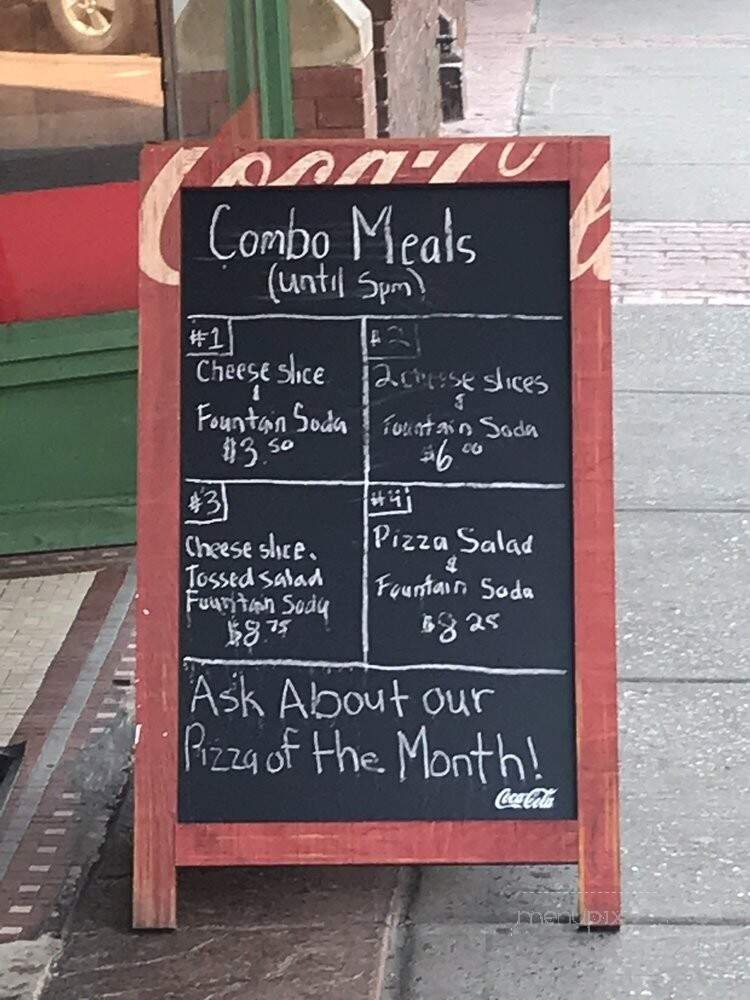 Coca-Co
Combo Meals
(until 5pm)
#1
Cheese slice
&
Fountain Soda
$3.50
#2
2 cheese slices
&
Fountain Soda
$6.00
#3
Cheese slice.
Tossed salad
Fountain Soda
$8.75
#4
Pizza Salad
&
Fountain Soda
$8.25
Ask About our
Pizza of the Month!
Coca-Cola
menupix